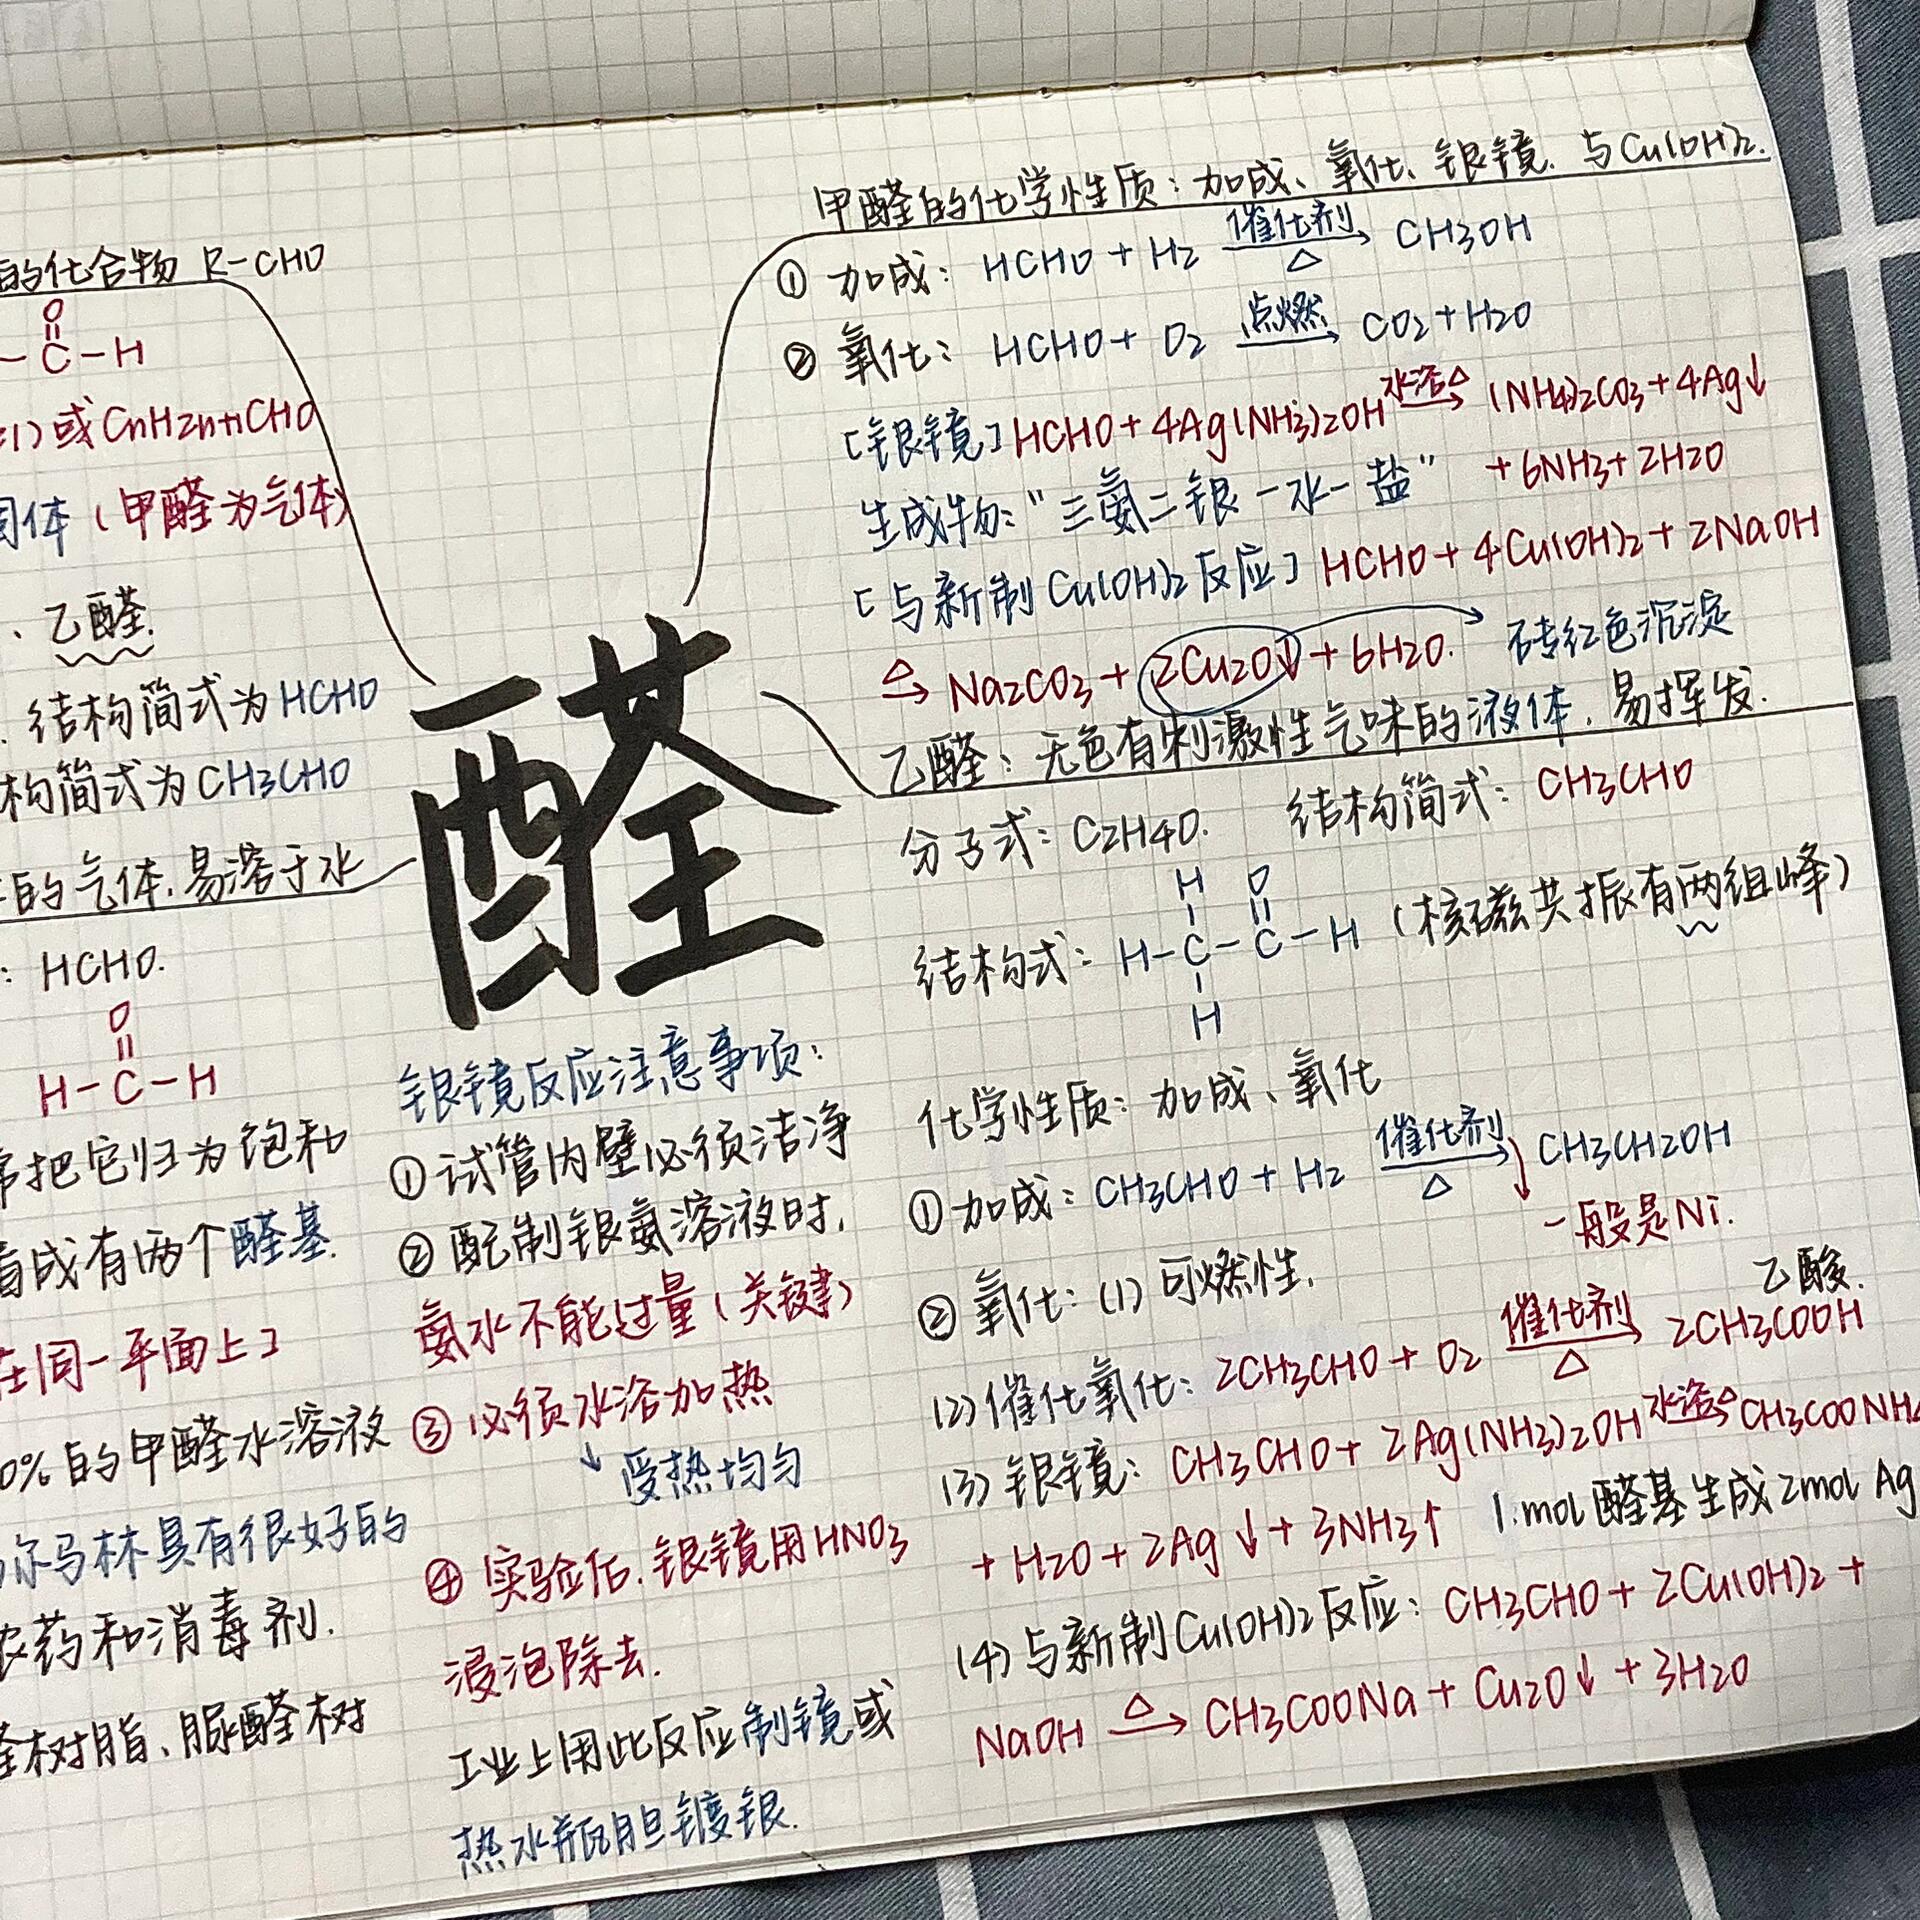 的化合物 R-CHO
O
-C-H
或CnH2n+1CHO
固体(甲醛为气体)
、乙醛.
. 结构简式为HCHO
构简式为CH3CHO
的气体,易溶于水
: HCHO.
O
H-C-H
常把它归为饱和
看成有两个醛基.
在同一平面上]
0%的甲醛水溶液
尔马林具有很好的
农药和消毒剂.
醛树脂、脲醛树
醛
银镜反应注意事项:
①试管内壁必须洁净
②配制银氨溶液时,
氨水不能过量(关键)
③必须水浴加热
↓受热均匀
④实验后,银镜用HNO3
浸泡除去.
工业上用此反应制镜或
热水瓶胆镀银.
甲醛的化学性质:加成、氧化、银镜、与Cu(OH)2.
①加成: HCHO + H2 催化剂→△ CH3OH
②氧化: HCHO + O2 点燃→ CO2+H2O
[银镜]HCHO+4Ag(NH3)2OH 水浴△→ (NH4)2CO3+4Ag↓
生成物:"三氨二银一水一盐" +6NH3+2H2O
[与新制Cu(OH)2反应] HCHO+4Cu(OH)2+2NaOH
△→ Na2CO3+2Cu2O↓+6H2O. 砖红色沉淀
乙醛:无色有刺激性气味的液体,易挥发.
分子式: C2H4O. 结构简式: CH3CHO
H O
结构式: H-C-C-H (核磁共振有两组峰)
H
化学性质:加成、氧化
①加成: CH3CHO + H2 催化剂→△ CH3CH2OH
一般是Ni.
②氧化: (1)可燃性.
乙酸.
(2)催化氧化: 2CH3CHO + O2 催化剂→△ 2CH3COOH
(3)银镜: CH3CHO+2Ag(NH3)2OH 水浴△→ CH3COONH4
+H2O+2Ag↓+3NH3↑ 1mol醛基生成2mol Ag
(4)与新制Cu(OH)2反应: CH3CHO+2Cu(OH)2+
NaOH △→ CH3COONa+Cu2O↓+3H2O